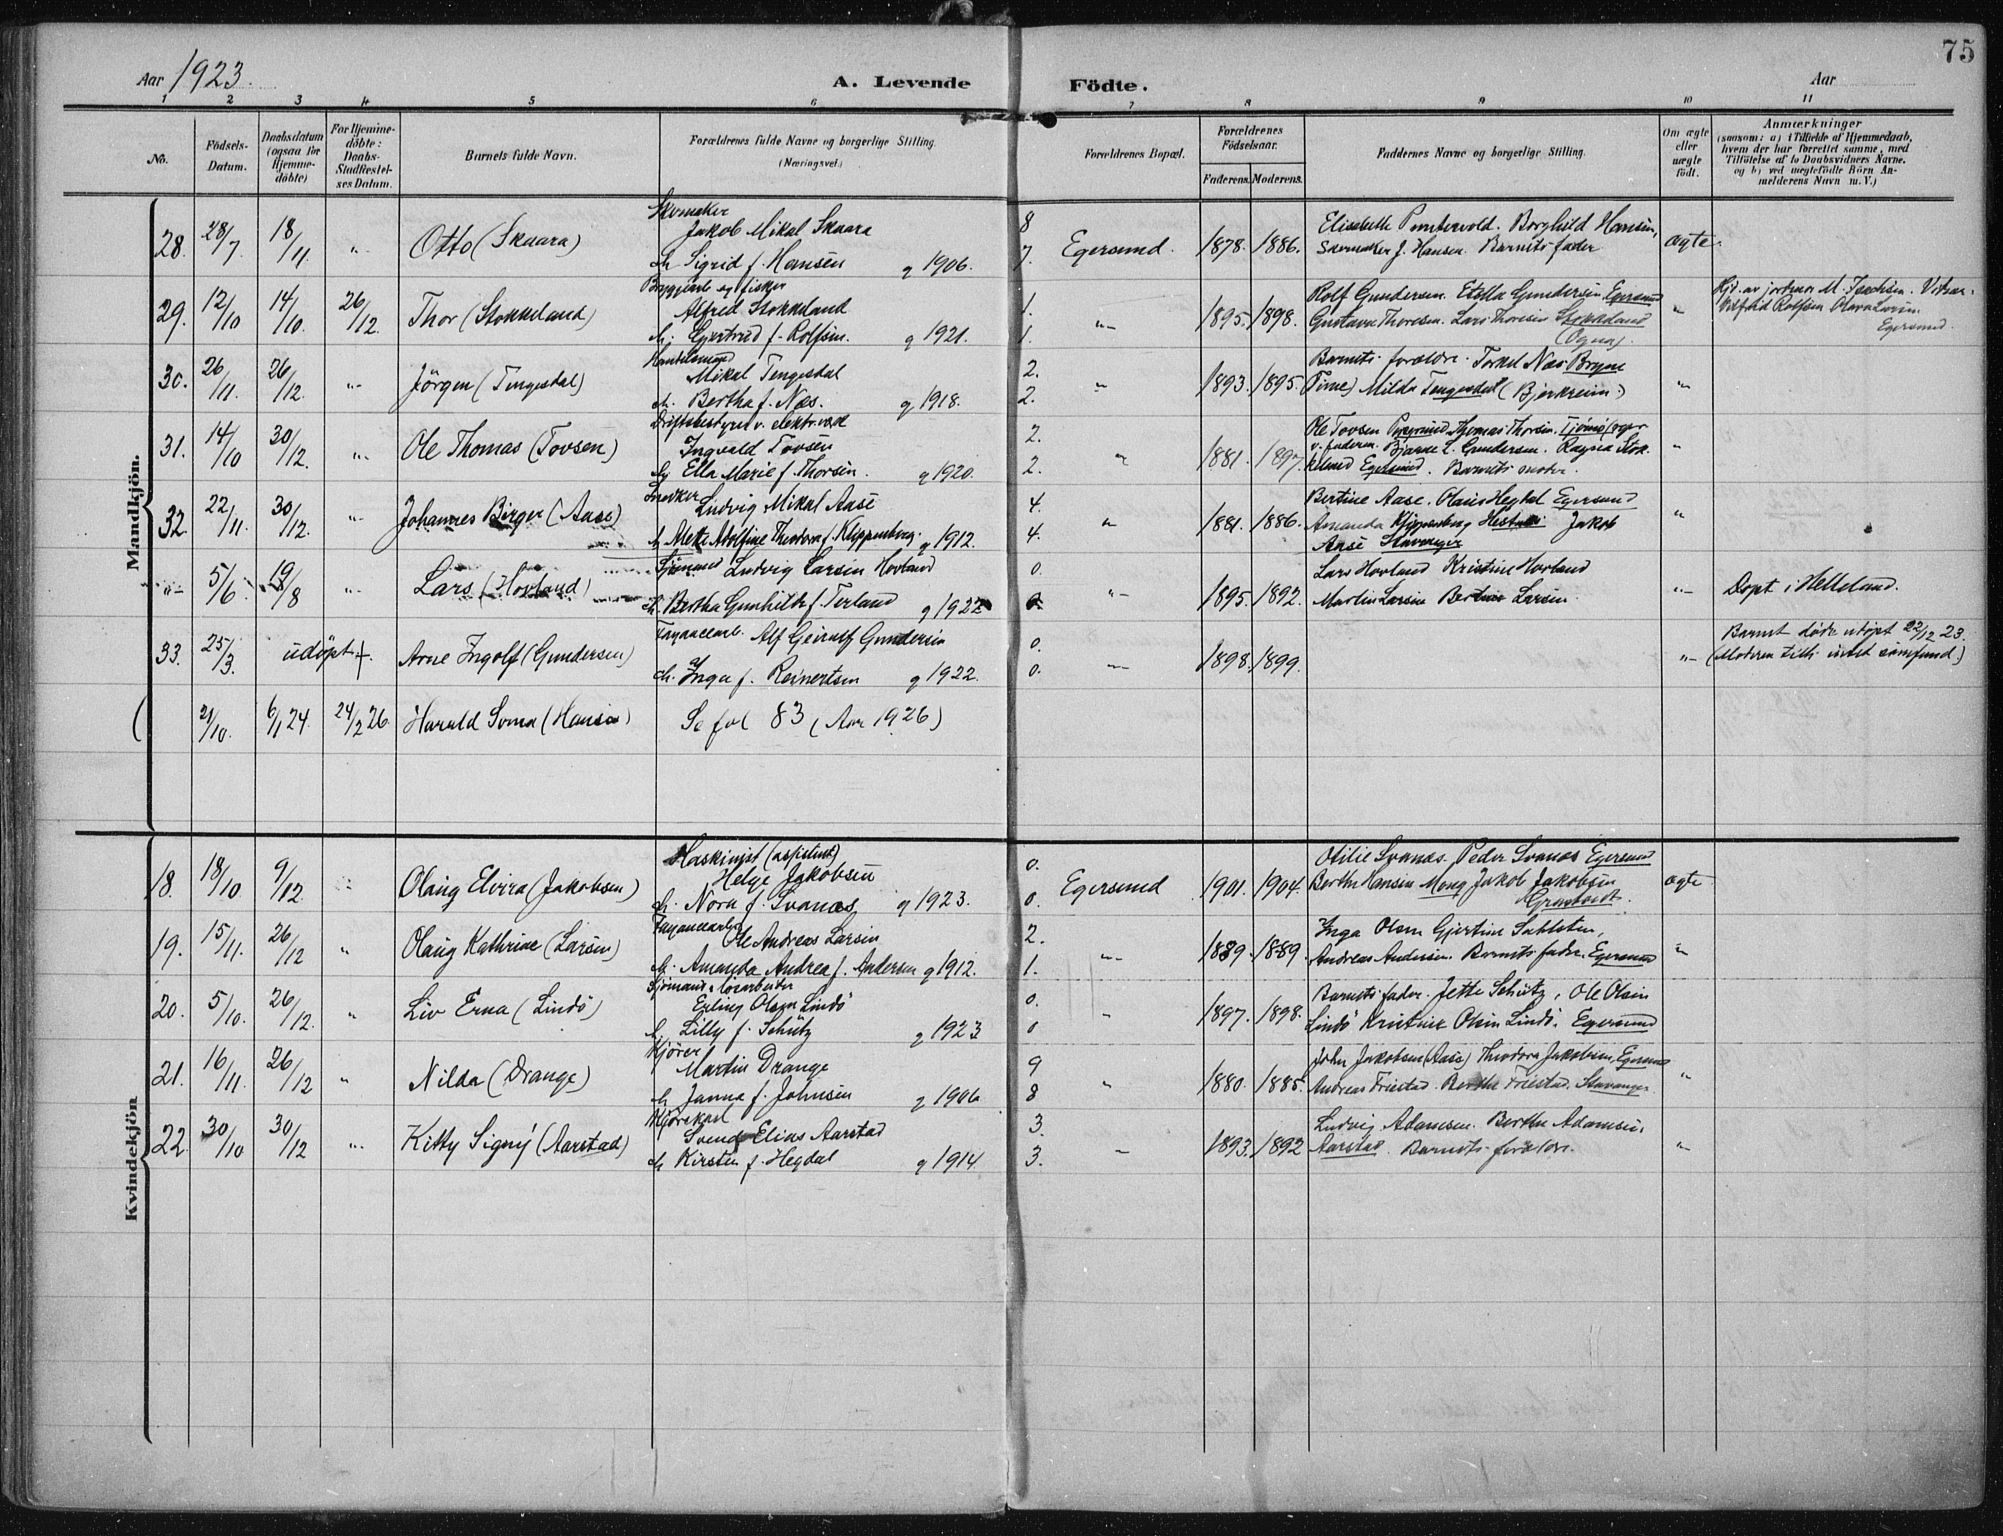 75
Aar 1923.
A. Levende Födte.
Aar
1 2 3 4 5 6 7 8 9 10 11
No.
Födsels-Datum.
Daabsdatum (ogsaa for Hjemme-döbte)
For Hjemme-döbte: Daabs-Stadfestel-ses Datum.
Barnets fulde Navn.
Forældrenes fulde Navne og borgerlige Stilling.
(Næringsvei.)
Forældrenes Bopæl.
Forældrenes Födselsaar.
Faderens. Moderens.
Faddernes Navne og borgerlige Stilling.
Om ægte eller uægte födt.
Anmærkninger
(saasom: a) i Tilfælde af Hjemmedaab, hvem der har forrettet samme, med Tilföielse af to Daabsvidners Navne. og b) ved uægtefödte Börn An-melderens Navn m. V.)
Mandkjön.
28. 28/7 18/11 -"- Otto (Skaara)
Skomaker
Jakob Mikal Skaara
Sigrid f. Hansen g 1906.
8 7. Egersund. 1878. 1886.
Elisabeth Borghild Hansen,
Skomaker J. Hansen Barnets fader
ægte.
29. 12/10 14/10. 26/12. Thor (Stokkeland)
Bryggearb. og fisker
Alfred Stokkeland
Gjertrud f. Rolfsen. g 1921.
1. 1. -"- 1895. 1898.
Rolf Gundersen. Etella Gundersen Egersund
Gustava Thoresen. Lars Thoresen Stokkeland
(Ogna).
"
Hjd. av jordmor M. Jacobsen. Vitner.
Rolfsen Olava Larsen
Egersund.
30. 26/11. 26/12. -"- Jörgen (Tengesdal)
Handelsmand
Mikal Tengesdal
Bertha f. Næs. g 1918.
2. 2. " 1893. 1895.
Barnets forældre. Torkel Næs Bryne
Time) Milda Tengesdal (Bjerkreim)
-"-
31. 14/10 30/12. -"- Ole Thomas (Tovsen)
Driftsbestyrer v. elektr. verk
Ingvald Tovsen
Ella Marie f. Thorsen. g 1920.
2. 2. " 1881. 1897.
Ole Tovsen Thomas Thorsen. Tjömö
v. faderen. Bjarne L. Gundersen. Ragna Stok-
keland Egersund. Barnets moder.
"
32. 22/11. 30/12. -"- Johannes Birger (Aase)
Snedker
Ludvig Mikal Aase
Mette Adolfine Theodora f. Klippenberg. g 1912.
4. 4. " 1881. 1886.
Bertine Aase. Olaus Hegdal Egersund
Amanda Klippenberg Jakob
Aase Stavanger
"
-"- 5/6. 19/8 -"- Lars (Hovland)
Sjömand Ludvig Larsen Hovland
Bertha Gunhilde f. Terland g 1922
0. 0. -"- 1895. 1892.
Lars Hovland Kristine Hovland
Martin Larsen Bertine Larsen.
-"- Döpt i Helleland.
33. 25/3. udöpt +. Arne Ingolf (Gundersen)
Fayancearb. Alf Geirulf Gundersen
Inga f. Reinertsen g 1922.
0. 0. -"- 1898. 1899.
-"-
Barnet döde udöpt 22/12 23.
(Moderen tilh. intet samfund.)
( 21/10. 6/1 24. 24/2 26. Harald Svma (Hansen)
Se fol 83 (Aar 1926)
Kvindekjön
18. 18/10. 9/12. " Olaug Elvira (Jakobsen)
Maskinist (assistent)
Helge Jakobsen
Nora f. Svanæs g 1923.
0. 0. Egersund 1901. 1904.
Otilie Svanæs. Peder Svanæs Egersund
Berthe Hansen Mong Jakob Jakobsen
ægte
19. 15/11. 26/12 " Olaug Kathrine (Larsen)
Fayancearb.
Ole Andreas Larsen
Amanda Andrea f. Andersen g 1912.
2. 1. -"- 1889. 1889.
Inga Olsen Gjertine Sahlsten,
Andreas Andersen. Barnets fader. Egersund
"
20. 5/10. 26/12. " Liv Erna (Lindö)
Sjömand & lösarbeider
Erling Olsen Lindö
Lilly f. Schütz g 1923
0. 0 " 1897. 1898.
Barnets fader. Jette Schütz, Ole Olsen
Lindö Kristine Olsen Lindö. Egersund
21. 16/11. 26/12 " Nilda (Drange)
Kjörer
Martin Drange
Janna f. Johnsen g 1906
9 8 " 1880. 1885.
John Jakobsen (Aase) Theodora Jakobsen, Egersund
Andreas Friestad. Berthe Friestad. Stavanger
"
22. 30/10 30/12 -"- Kitty Signy (Aarstad)
Kjörekarl
Svend Elias Aarstad
Kirsten f. Hegdal g 1914
3. 3. " 1893. 1892
Ludvig Adamsen. Berthe Adamsen,
Aarstad. Barnets forældre.
"